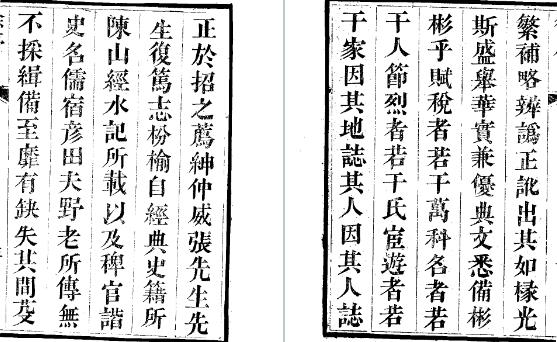 繁補略辨譌正訛出其如椽光
斯盛舉華實兼優典文悉備彬
彬乎賦稅者若干萬科名者若
干人節烈者若干氏宦遊者若
干家因其地誌其人因其人誌
正於招之薦紳仲威張先生先
生復篤志枌榆自經典史籍所
陳山經水記所載以及稗官諧
史名儒宿彦田夫野老所傳無
不採緝備至靡有缺失其間芟